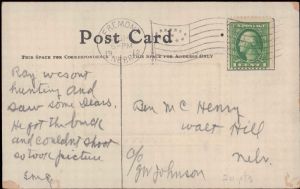 Post Card
THIS SPACE FOR CORRESPONDENCE
THIS SPACE FOR ADDRESS ONLY
FREMONT
NEBR.
Ray went
hunting and
saw some bears.
He got the buck
and couldn't shoot
so took picture
Emg.
Ben McHenry
Walt Hill
Nebr.
c/o
Johnson